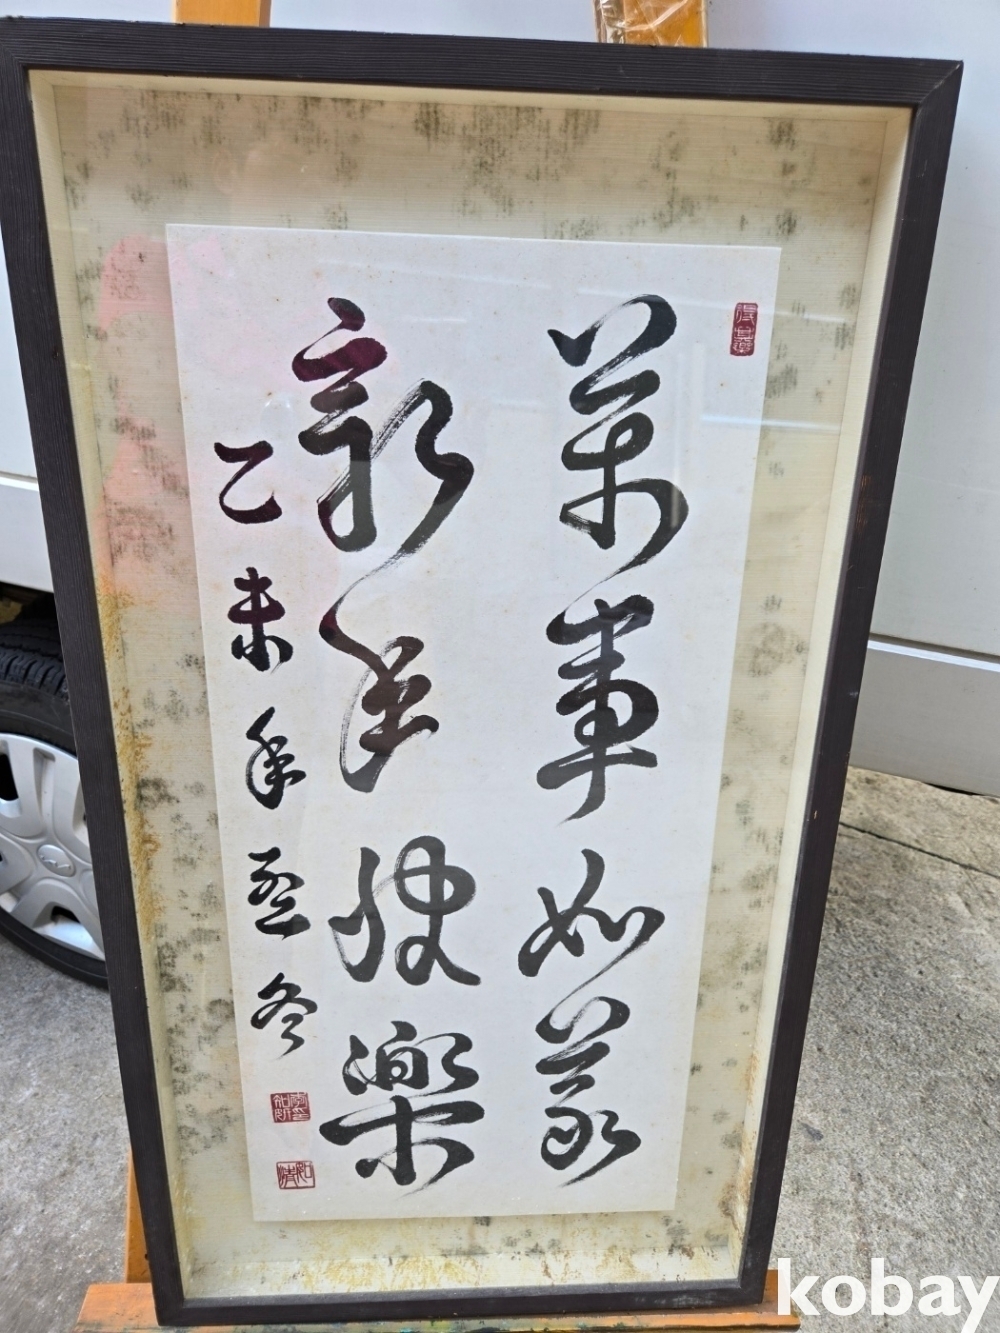 萬事如意
新年快樂
乙未年孟冬
kobay